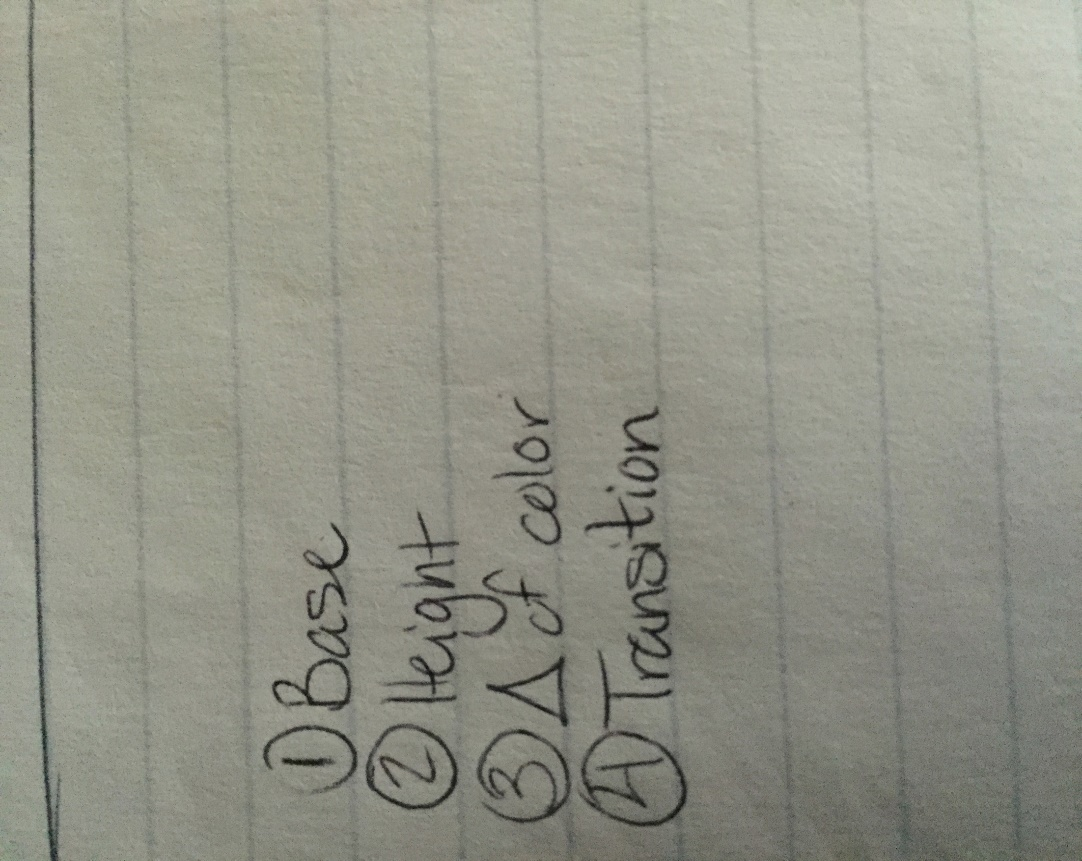 ① Base
② Height
③ Δ of color
④ Transition